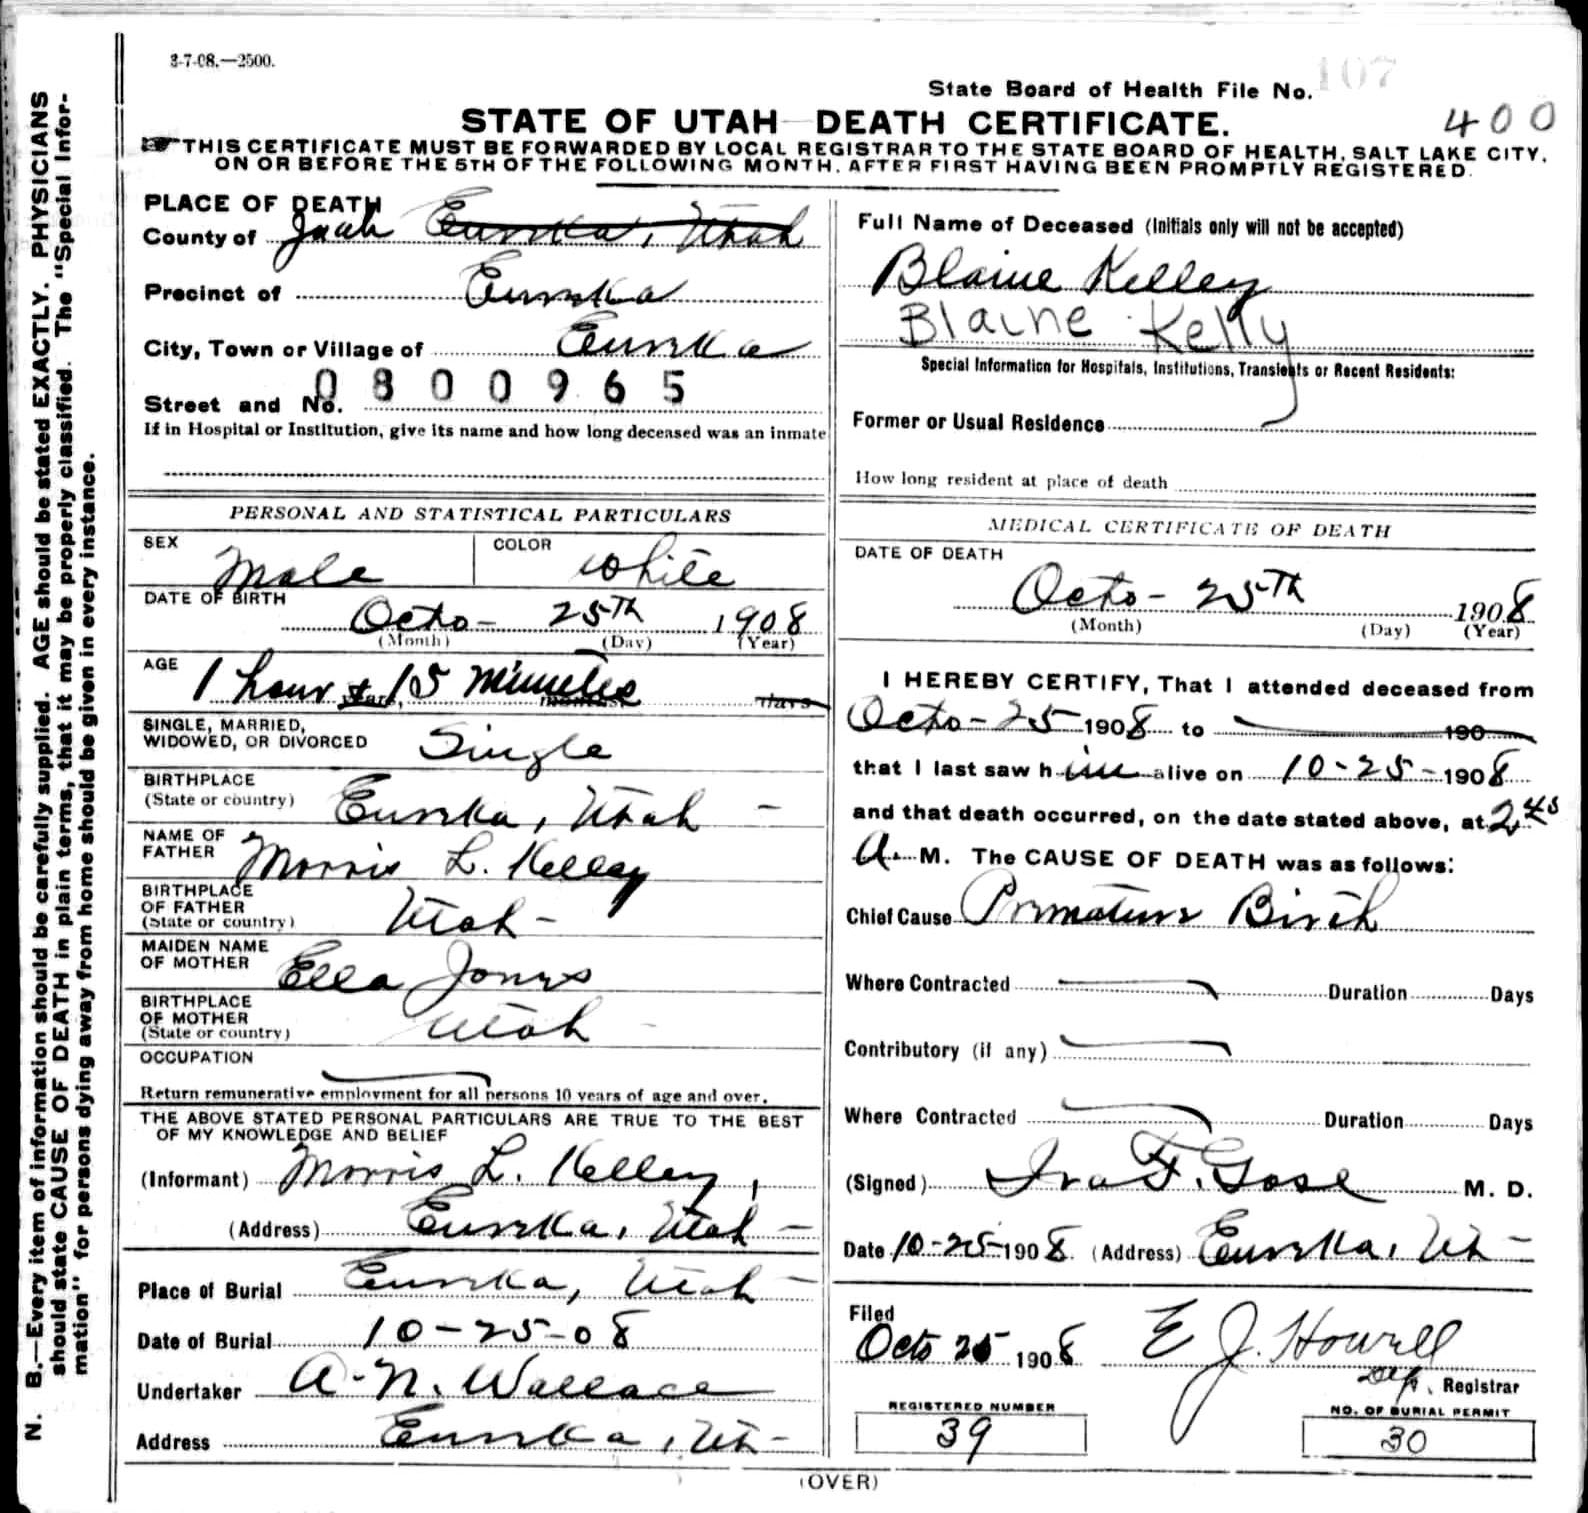 3-7-08.—2500.
State Board of Health File No. 107
STATE OF UTAH DEATH CERTIFICATE.
400
THIS CERTIFICATE MUST BE FORWARDED BY LOCAL REGISTRAR TO THE STATE BOARD OF HEALTH, SALT LAKE CITY,
ON OR BEFORE THE 5TH OF THE FOLLOWING MONTH, AFTER FIRST HAVING BEEN PROMPTLY REGISTERED.
PLACE OF DEATH
County of Juab Eureka, Utah
Precinct of Eureka
City, Town or Village of Eureka
0800965
Street and No.
If in Hospital or Institution, give its name and how long deceased was an inmate
Full Name of Deceased (Initials only will not be accepted)
Blaine Kelley
Blaine Kelly
Special Information for Hospitals, Institutions, Transients or Recent Residents:
Former or Usual Residence
How long resident at place of death
PERSONAL AND STATISTICAL PARTICULARS
SEX Male COLOR White
DATE OF BIRTH
Octo- 25Th 1908
(Month) (Day) (Year)
AGE
1 hour & 15 Minutes years, months, days
SINGLE, MARRIED,
WIDOWED, OR DIVORCED Single
BIRTHPLACE
(State or country) Eureka, Utah -
NAME OF
FATHER Morris L. Kelley
BIRTHPLACE
OF FATHER
(State or country) Utah -
MAIDEN NAME
OF MOTHER Ella Jones
BIRTHPLACE
OF MOTHER
(State or country) Utah -
OCCUPATION
Return remunerative employment for all persons 10 years of age and over.
THE ABOVE STATED PERSONAL PARTICULARS ARE TRUE TO THE BEST
OF MY KNOWLEDGE AND BELIEF
(Informant) Morris L. Kelley,
(Address) Eureka, Utah -
Place of Burial Eureka, Utah -
Date of Burial 10-25-08
Undertaker A. N. Wallace
Address Eureka, Ut-
MEDICAL CERTIFICATE OF DEATH
DATE OF DEATH
Octo- 25Th 1908
(Month) (Day) (Year)
I HEREBY CERTIFY, That I attended deceased from
Octo- 25 1908 to 190
that I last saw him alive on 10-25-1908
and that death occurred, on the date stated above, at 2,45
A. M. The CAUSE OF DEATH was as follows:
Chief Cause Premature Birth
Where Contracted Duration Days
Contributory (if any)
Where Contracted Duration Days
(Signed) Ira F. Gose M. D.
Date 10-25-1908. (Address) Eureka, Ut-
Filed
Octo 25 1908 E J. Howell
Dep. Registrar
REGISTERED NUMBER
39
NO. OF BURIAL PERMIT
30
(OVER)
N. B.—Every item of information should be carefully supplied. AGE should be stated EXACTLY. PHYSICIANS
should state CAUSE OF DEATH in plain terms, that it may be properly classified. The "Special Infor-
mation" for persons dying away from home should be given in every instance.